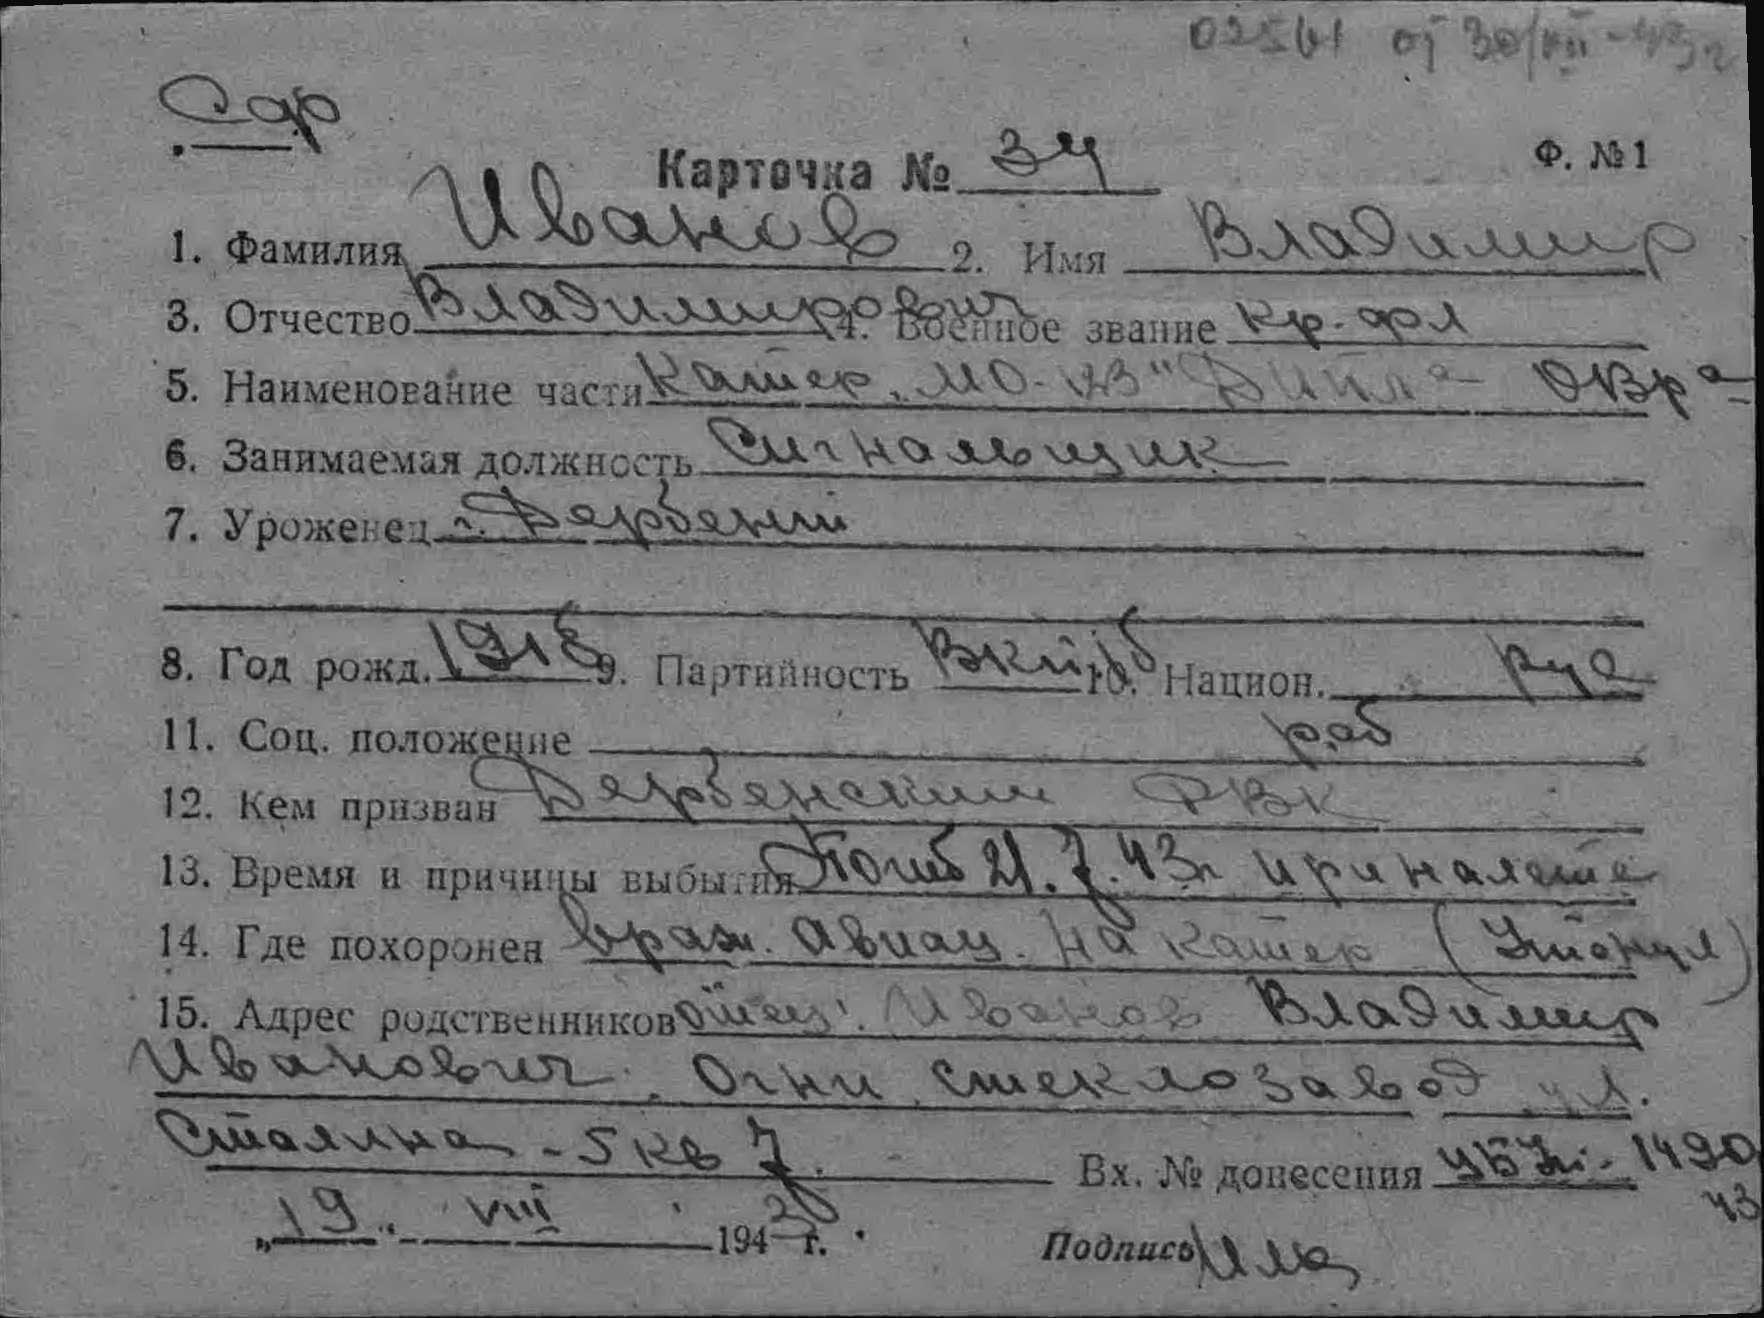 02561 от 30/VIII-43г
Сдр
Карточка № 34 Ф. №1
1. Фамилия Иванов 2. Имя Владимир
3. Отчество Владимирович 4. Военное звание кр-фл
5. Наименование части Катер "МО-123" ОВРа
6. Занимаемая должность Сигнальщик
7. Уроженец г. Дербент
8. Год рожд. 1918 9. Партийность ВКП/б 10. Национ. рус
11. Соц. положение раб
12. Кем призван Дербенским РВК
13. Время и причины выбытия Погиб 21.7.43г при налете
14. Где похоронен враж. авиац. на катер (Утонул)
15. Адрес родственников отец: Иванов Владимир
Иванович. Огни стеклозавод ул.
Сталина-5 кв 7.
Вх. № донесения 1490
43
„19" VIII 1943 г.
Подпись